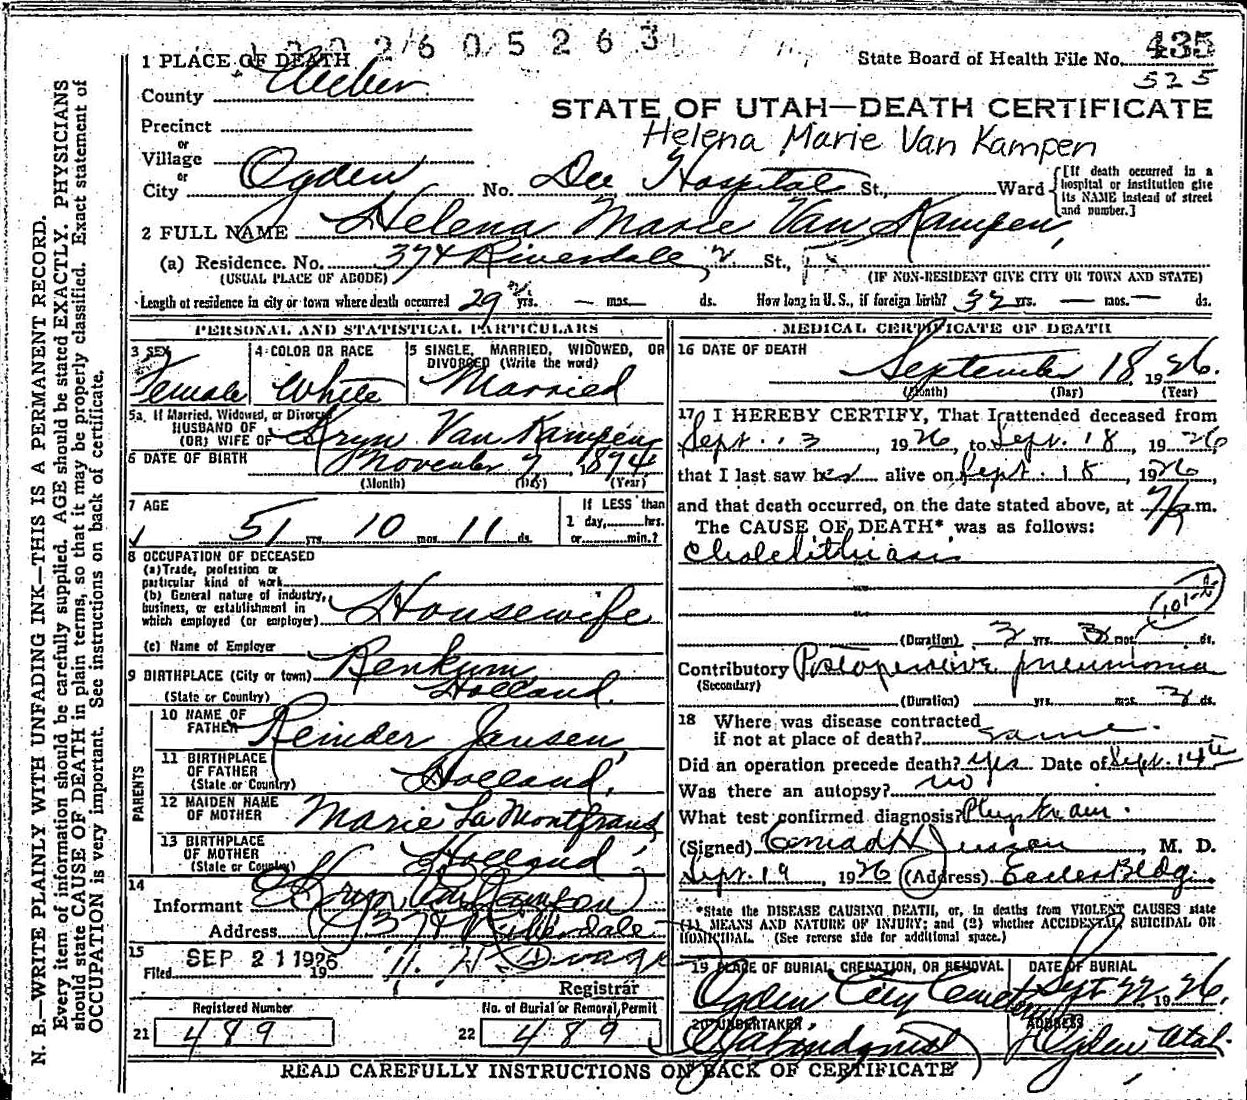 2605263
1 PLACE OF DEATH
State Board of Health File No. 435
525
County Weber
STATE OF UTAH—DEATH CERTIFICATE
Precinct
Helena Marie Van Kampen
or
Village
or
City Ogden No. Dee Hospital St., Ward [If death occurred in a hospital or institution give its NAME instead of street and number.]
2 FULL NAME Helena Marie Van Kampen,
(a) Residence. No. 374 Riverdale St.,
(USUAL PLACE OF ABODE) (IF NON-RESIDENT GIVE CITY OR TOWN AND STATE)
Length of residence in city or town where death occurred 29 yrs. — mos. ds. How long in U. S., if foreign birth? 32 yrs. — mos. — ds.
PERSONAL AND STATISTICAL PARTICULARS
3 SEX Female
4 COLOR OR RACE White
5 SINGLE, MARRIED, WIDOWED, OR DIVORCED (Write the word) Married
5a. If Married, Widowed, or Divorced
HUSBAND OF
(OR) WIFE OF Kryn Van Kampen
6 DATE OF BIRTH November 7, 1874
(Month) (Day) (Year)
7 AGE 51 yrs. 10 mos. 11 ds.
If LESS than
1 day, hrs.
or min.?
8 OCCUPATION OF DECEASED
(a) Trade, profession or
particular kind of work
(b) General nature of industry,
business, or establishment in
which employed (or employer) Housewife
(c) Name of Employer
9 BIRTHPLACE (City or town) Renkum
(State or Country) Holland
PARENTS
10 NAME OF FATHER Reinder Jansen,
11 BIRTHPLACE OF FATHER (State or Country) Holland,
12 MAIDEN NAME OF MOTHER Marie La Montfrans
13 BIRTHPLACE OF MOTHER (State or Country) Holland
14
Informant Kryn Van Kampen
Address 374 Riverdale
15
Filed SEP 21 1926
Registrar
Registered Number
21 489
No. of Burial or Removal Permit
22 489
MEDICAL CERTIFICATE OF DEATH
16 DATE OF DEATH
September 18 1926.
(Month) (Day) (Year)
17 I HEREBY CERTIFY, That I attended deceased from
Sept. 13, 1926, to Sept. 18, 1926
that I last saw her alive on Sept. 18, 1926,
and that death occurred, on the date stated above, at 7 a.m.
The CAUSE OF DEATH* was as follows:
Cholelithiasis
(Duration) 2 yrs. 3 mos. ds.
Contributory Postoperative pneumonia
(Secondary)
(Duration) yrs. mos. 3 ds.
18 Where was disease contracted
if not at place of death? Same.
Did an operation precede death? yes Date of Sept. 14th
Was there an autopsy? no
What test confirmed diagnosis? Phys Exam.
(Signed) Conrad H Jenson, M. D.
Sept. 19, 1926 (Address) Eccles Bldg.
*State the DISEASE CAUSING DEATH, or, in deaths from VIOLENT CAUSES state
(1) MEANS AND NATURE OF INJURY; and (2) whether ACCIDENTAL, SUICIDAL OR
HOMICIDAL. (See reverse side for additional space.)
19 PLACE OF BURIAL, CREMATION, OR REMOVAL Ogden City Cemetery
DATE OF BURIAL Sept 22 1926.
20 UNDERTAKER Lindquist
ADDRESS Ogden Utah.
READ CAREFULLY INSTRUCTIONS ON BACK OF CERTIFICATE
N. B.—WRITE PLAINLY WITH UNFADING INK—THIS IS A PERMANENT RECORD.
Every item of information should be carefully supplied. AGE should be stated EXACTLY. PHYSICIANS
should state CAUSE OF DEATH in plain terms, so that it may be properly classified. Exact statement of
OCCUPATION is very important. See instructions on back of certificate.